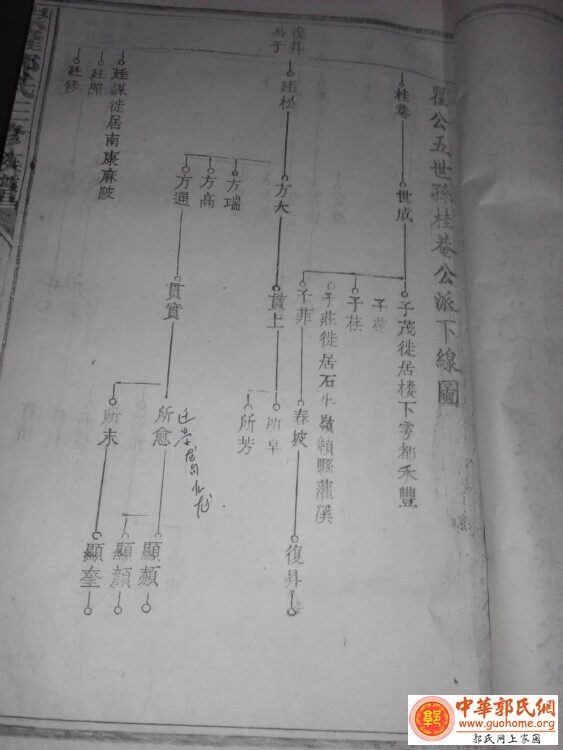 瞿公五世孫桂菴公派下線圖
桂菴
世成
子茂徙居楼下雩都禾豐
子苑
子荏
子莊徙居石牛嶺贛縣灌溪
子菲
春坡
復昇
復昇
公子
廷松
方大
貫上
所早
所芳
方瑞
方高
方通
貫實
所愈
所末
顯頫
顯顔
顯奎
廷謀徙居南康麻陂
廷照
廷修
郭氏三修族譜
中華郭氏網
www.guohome.com
郭氏网上家园